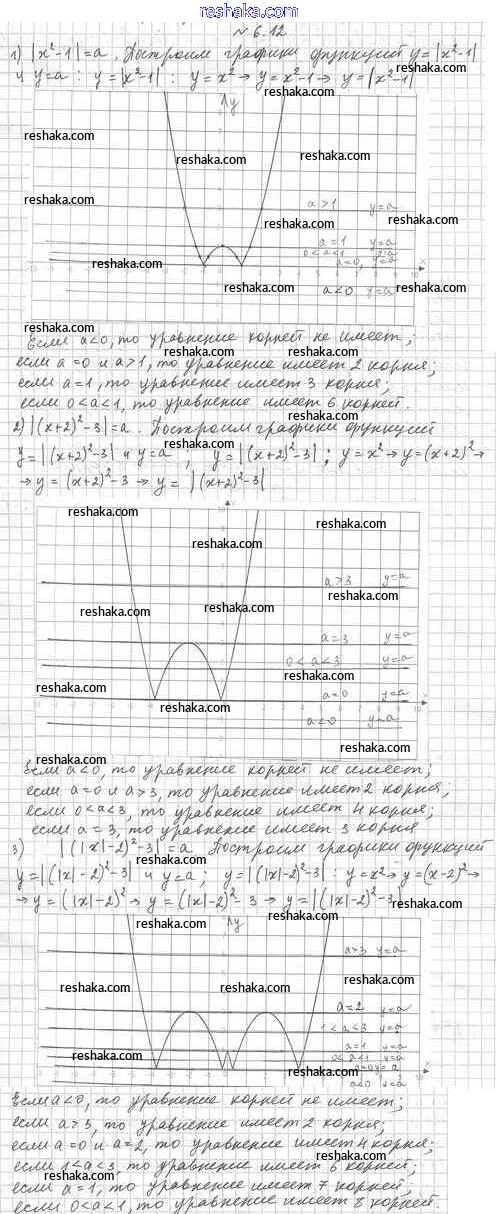 www.reshaka.com
№ 6.12
1) |x²-1|=a. Построим графики функций y=|x²-1|
и y=a : y=|x²-1| : y=x² → y=x²-1 → y=|x²-1|
reshaka.com
reshaka.com
y
reshaka.com
reshaka.com
reshaka.com
a>1 y=a
reshaka.com
reshaka.com
a=1 y=a
0<a<1 y=a
a=0, y=a
reshaka.com
x
reshaka.com
a<0 y=a
reshaka.com
Если a<0, то уравнение корней не имеет;
reshaka.com
reshaka.com
если a=0 и a>1, то уравнение имеет 2 корня;
если a=1, то уравнение имеет 3 корня;
reshaka.com
если 0<a<1, то уравнение имеет 6 корней.
2) |(x+2)²-3|=a. Построим графики функций
reshaka.com
y=|(x+2)²-3| и y=a ; y=|(x+2)²-3| ; y=x² → y=(x+2)² →
reshaka.com
→ y=(x+2)²-3 → y=|(x+2)²-3|
reshaka.com
reshaka.com
reshaka.com
a>3 y=a
reshaka.com
reshaka.com
reshaka.com
a=3 y=a
0<a<3 y=a
reshaka.com
reshaka.com
a=0 y=a
reshaka.com
a<0 y=a
reshaka.com
reshaka.com
Если a<0, то уравнение корней не имеет;
если a=0 и a>3, то уравнение имеет 2 корня;
reshaka.com
reshaka.com
если 0<a<3, то уравнение имеет 4 корня;
если a=3, то уравнение имеет 3 корня
3) |(|x|-2)²-3|=a Построим графики функций
reshaka.com
y=|(|x|-2)²-3| и y=a; y=|(|x|-2)²-3| : y=x² → y=(x-2)² →
→ y=(|x|-2)² → y=(|x|-2)²-3 → y=|(|x|-2)²-3|
reshaka.com
reshaka.com
y
reshaka.com
a>3 y=a
reshaka.com
reshaka.com
reshaka.com
a=2 y=a
1<a<3 y=a
a=1 y=a
reshaka.com
0<a<1 y=a
reshaka.com
a=0 y=a
x
a<0 y=a
Если a<0, то уравнение корней не имеет;
reshaka.com
если a>3, то уравнение имеет 2 корня;
reshaka.com
если a=0 и a=2, то уравнение имеет 4 корня;
reshaka.com
если 1<a<3, то уравнение имеет 6 корней;
reshaka.com
если a=1, то уравнение имеет 7 корней;
reshaka.com
если 0<a<1, то уравнение имеет 8 корней.